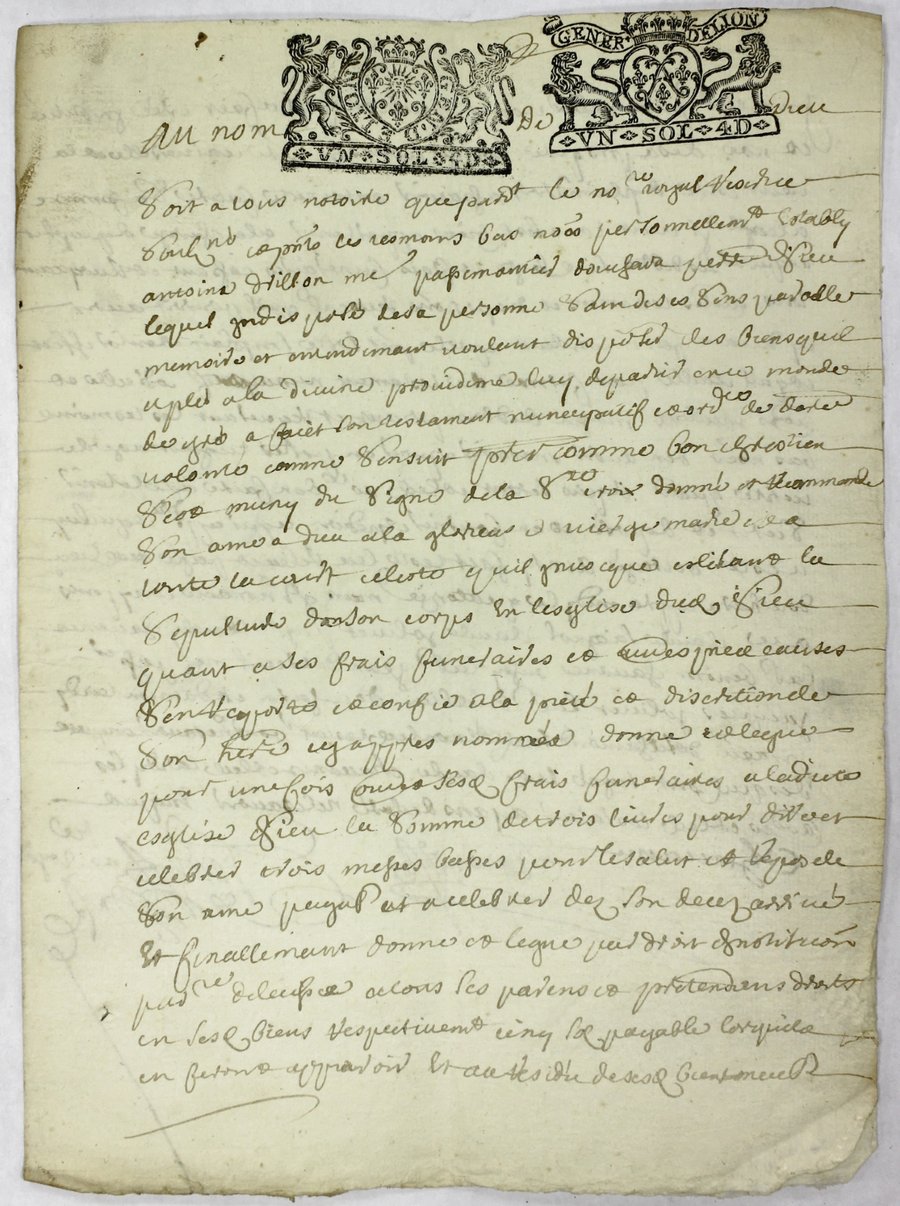 GENER DELION
VN SOL 4D VN SOL 4D
Au nom de dieu
Soit a tous notoire que pardt le nore royal
soubne et pnts les tesmoins bas noes personnellemt estably
antoine drillon me passemantier dieu
lequel indisposé de sa personne sain de ses sens parolle
memoire et entendemant voulant disposer des biens quil
a pleu a la divine providence luy departir en ce monde
de gré a faict son testament nuncupatif et ordre de dere
volonté comme sensuit premr comme bon chrestien
sest muny du signe de la ste croix donné et recommande
son ame a dieu a la glorieuse vierge marie et a
toute la court celeste quil invocque eslisant la
sepulture de son corps en lesglise dud lieu
quant a ses frais funeraires et œuvres pies causes
sen raporte et confie a la pieté et discretion de
son here cy appres nommée donne et legue
pour une fois outre sesd frais funeraires a ladite
esglise dieu la somme de trois livres pour dire et
celebrer trois messes basses pour le salut et repos de
son ame payab et a celebrer dez son decez arrivé
Et finallemant donne et legue par droit dinstitution
parre delaissée a tous ses parens et pretendens droits
en sesd biens respectivemt cinq sols payable lorsquils
en feront apparoir Et au residu de sesd biens meub